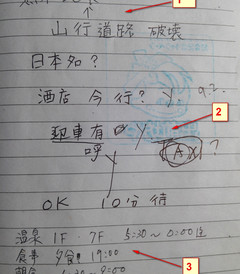 山行道路 破壊
日本知?
酒店 今 行? Y. 9.2.
取車有 Y
呼 TAXI ?
OK 10分待
温泉 1F. 7F 5:30~0:00迄
食事 夕食 19:00
~9:00
1
2
3